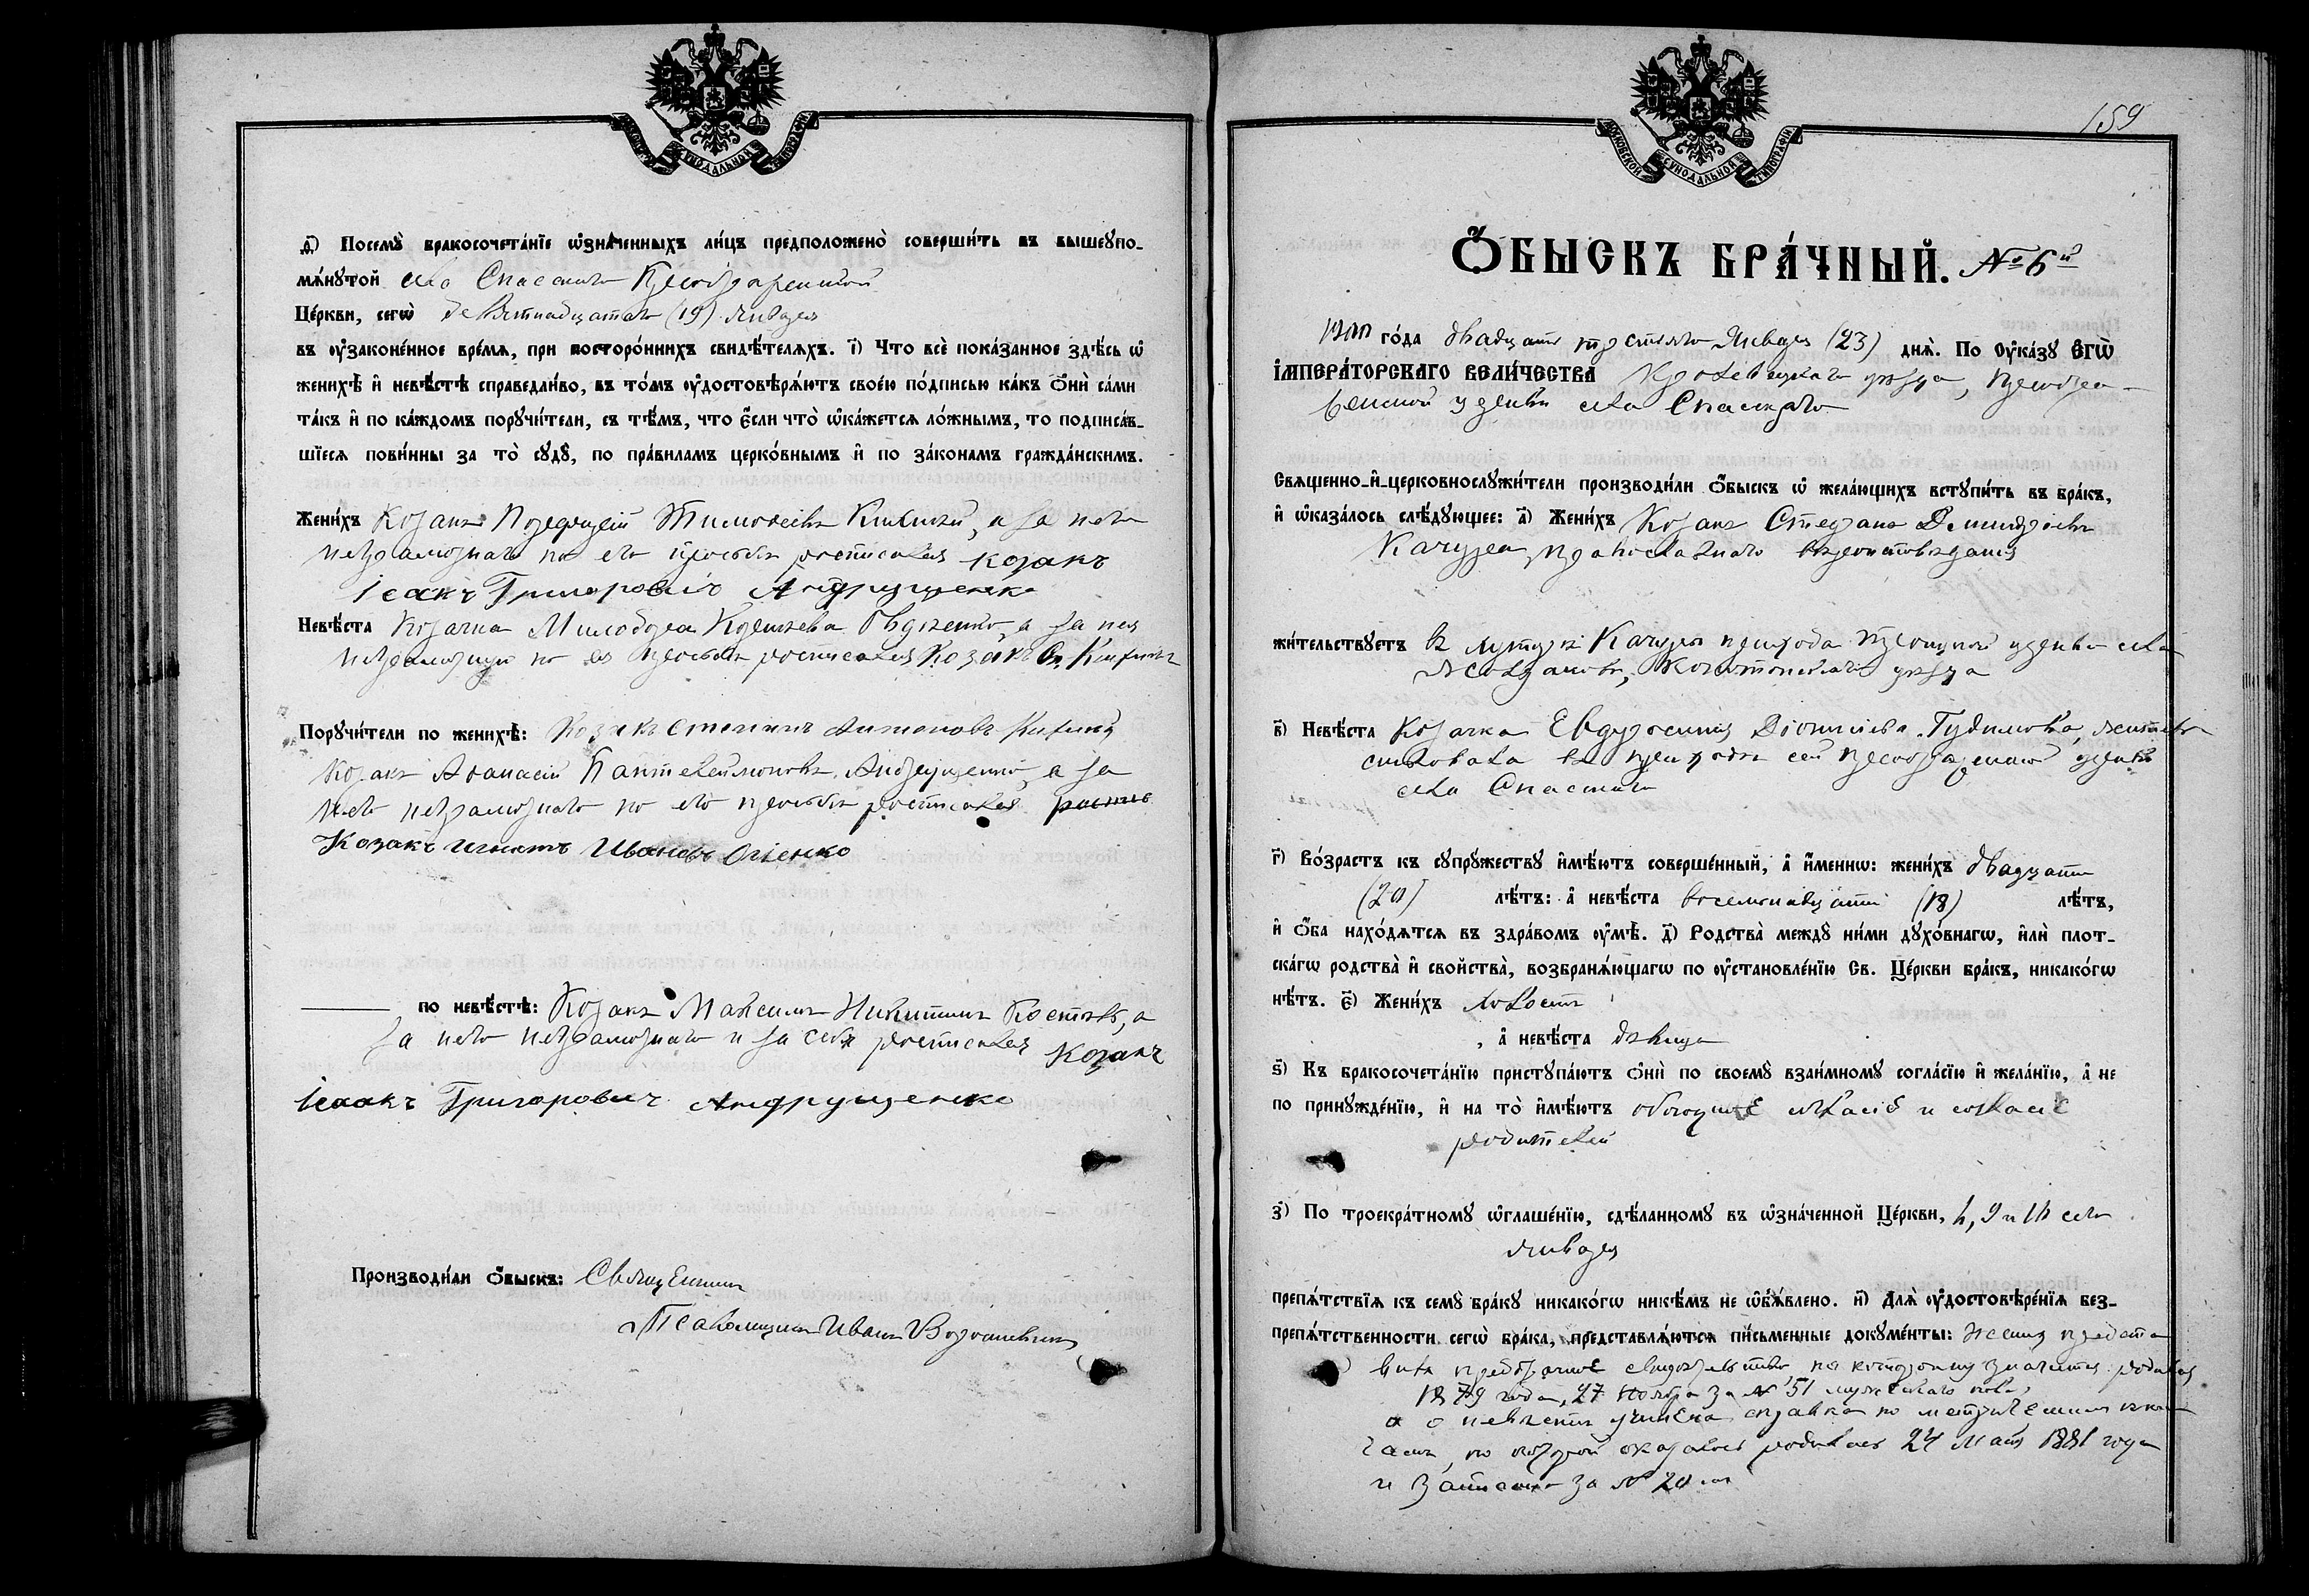 МОСКОВСКОЙ СѴНОДАЛЬНОЙ ТИПОГРАФІИ
д҃і) Посемꙋ̀ бракосочета́нїе ѡ҆зна́ченныхъ ли́цъ предположено̀ соверши́ть въ вышеꙋпо-
мѧ́нꙋтой села Спасскаго Преображенской
Це́ркви, сегѡ̀ девятнадцатаго (19) Января
въ ᲂу҆зако́не́нное вре́мѧ, при посторо́ннихъ свидѣ́телѧхъ. і҃) Что всѐ пока́занное здѣ́сь ѡ҆
женихѣ̀ и҆ невѣ́стѣ справедли́во, въ то́мъ ᲂу҆достовѣрѧ́ютъ свое́ю по́дписью ка́къ ѻ҆нѝ са́ми
та́къ и҆ по ка́ждомъ порꙋчи́тели, съ тѣ́мъ, что є҆́сли что̀ ѡ҆ка́жетсѧ ло́жнымъ, то подписа́в-
шїесѧ пови́нны за то̀ сꙋдꙋ̀, по пра́виламъ церко́внымъ и҆ по зако́намъ гражда́нскимъ.
Жени́хъ Козакъ Тимоѳеевъ а за него
неграмотнаго по его просьбѣ росписался козакъ
Ісакъ Григоровичъ Андрущенко
Невѣ́ста Козачка а за нея
неграмотную по ея просьбѣ росписался Козакъ
Порꙋчи́тели по женихѣ̀: Козакъ Степанъ Антоновъ
Козакъ Аѳанасій Пантелеймоновъ Андрущенко а за
него неграмотнаго по его просьбѣ росписался
Козакъ Игнатъ Ивановъ Огіенко
по невѣ́стѣ: Козакъ Максимъ Никитинъ а
за него неграмотнаго и за себя росписался Козакъ
Ісаакъ Григоровичъ Андрущенко
Производи́ли ѻ҆́быскъ: Священникъ
Псаломщикъ Иванъ
159
МОСКОВСКОЙ СѴНОДАЛЬНОЙ ТИПОГРАФІИ
Ѻ҆́БЫСКЪ БРА́ЧНЫЙ. № 6й
1900 го́да двадцать третьяго Января (23) днѧ̀. По ᲂу҆ка́зꙋ Є҆гѡ̀
і҆мпера́торскагѡ вели́чества Кролевецкаго уѣзда, Преобра-
женской церкви села Спасскаго
Свѧщенно-и҆-церковнослꙋжи́тели производи́ли ѻ҆́быскъ ѡ҆ жела́ющихъ встꙋпи́ть въ бра́къ,
и҆ ѡ҆каза́лось слѣ́дꙋющее: а҃) Жени́хъ Козакъ Стефанъ Димитріевъ
Качура, православнаго вѣроисповѣданія
жи́тельствꙋетъ въ хуторѣ Качуры прихода Троицкой церкви села
уѣзда
в҃) Невѣ́ста Козачка Евдокія Діонисіева жител-
ствовала въ приходѣ сей Преображенской церкви
села Спасскаго
г҃) Во́зрастъ къ сꙋпрꙋ́жествꙋ и҆мѣ́ютъ соверше́нный, а҆ и҆́меннѡ: жени́хъ двадцать
(20) лѣ́тъ: а҆ невѣ́ста восемнадцать (18) лѣ́тъ,
и҆ ѻ҆́ба нахо́дѧтсѧ въ здра́вомъ ᲂу҆мѣ̀. д҃) Родства̀ междꙋ̀ ни́ми дꙋхо́внагѡ, и҆лѝ плот-
ска́гѡ родства̀ и҆ свойства̀, возбранѧ́ющагѡ по ᲂу҆становле́нїю Св. Це́ркви бра́къ, никако́гѡ
нѣ́тъ. є҃) Жени́хъ холостъ
, а҆ невѣ́ста дѣвица
ѕ҃) Къ бракосочета́нїю пристꙋпа́ютъ ѻ҆нѝ по своемꙋ̀ взаи́мномꙋ согла́сїю и҆ жела́нїю, а҆ не
по принꙋжде́нїю, и҆ на то̀ и҆мѣ́ютъ обоюдное согласіе и согласіе
родителей
з҃) По троекра́тномꙋ ѡ҆глаше́нїю, сдѣ́ланномꙋ въ ѡ҆зна́ченной Це́ркви, 6, 9 и 16 сего
Января
препѧ́тствїѧ къ семꙋ̀ бра́кꙋ никако́гѡ никѣ́мъ не ѡ҆б̾ѧ́влено. и҃) Длѧ̀ ᲂу҆достовѣре́нїѧ без-
препѧ́тственности сегѡ̀ бра́ка, представлѧ́ютсѧ пи́сьменные докꙋме́нты: Женихъ предста-
вилъ предбрачное свидѣтельство по которому значится родился
1879 года, 27 Ноября за № 51 мужескаго пола,
а о невѣстѣ учинена справка по метрическимъ кни-
гамъ, по которой оказалось родилась 24 Мая 1881 года
и записана за № 20